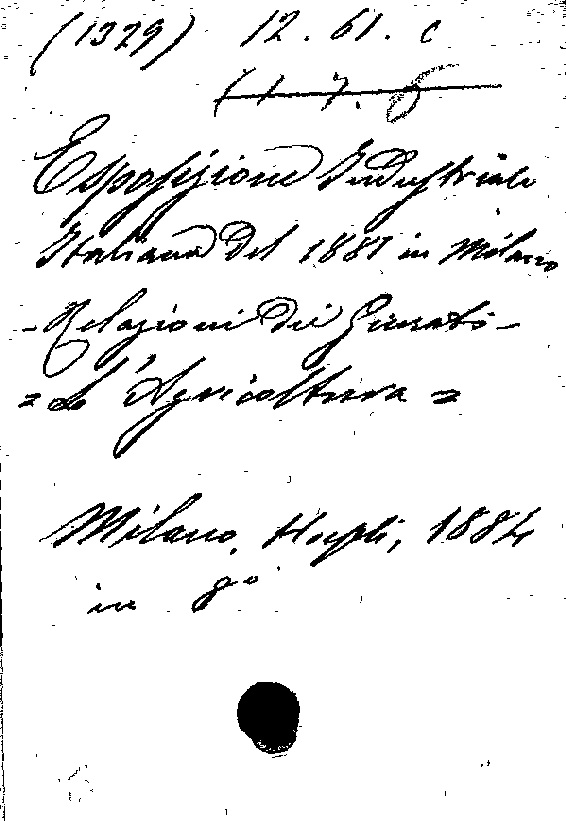 (1329) 12. 61. c
(1. 7. 6
Esposizione Industriale
Italiana del 1881 in Milano
- Relazioni dei Giurati -
= L'Agricoltura =
Milano, Hoepli, 1884
in 8°